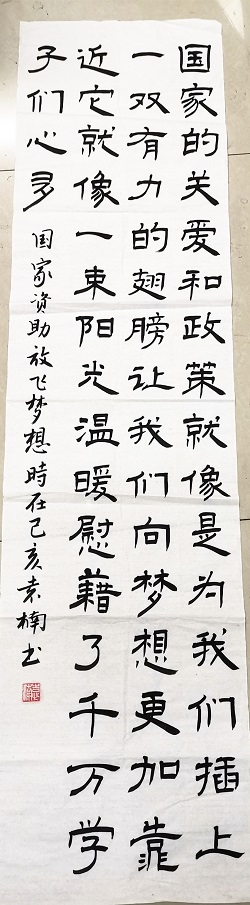 国家的关爱和政策就像是为我们插上
一双有力的翅膀让我们向梦想更加靠
近它就像一東阳光温暖慰藉了千万学
子们心多
国家资助放飞梦想時在己亥袁楠书